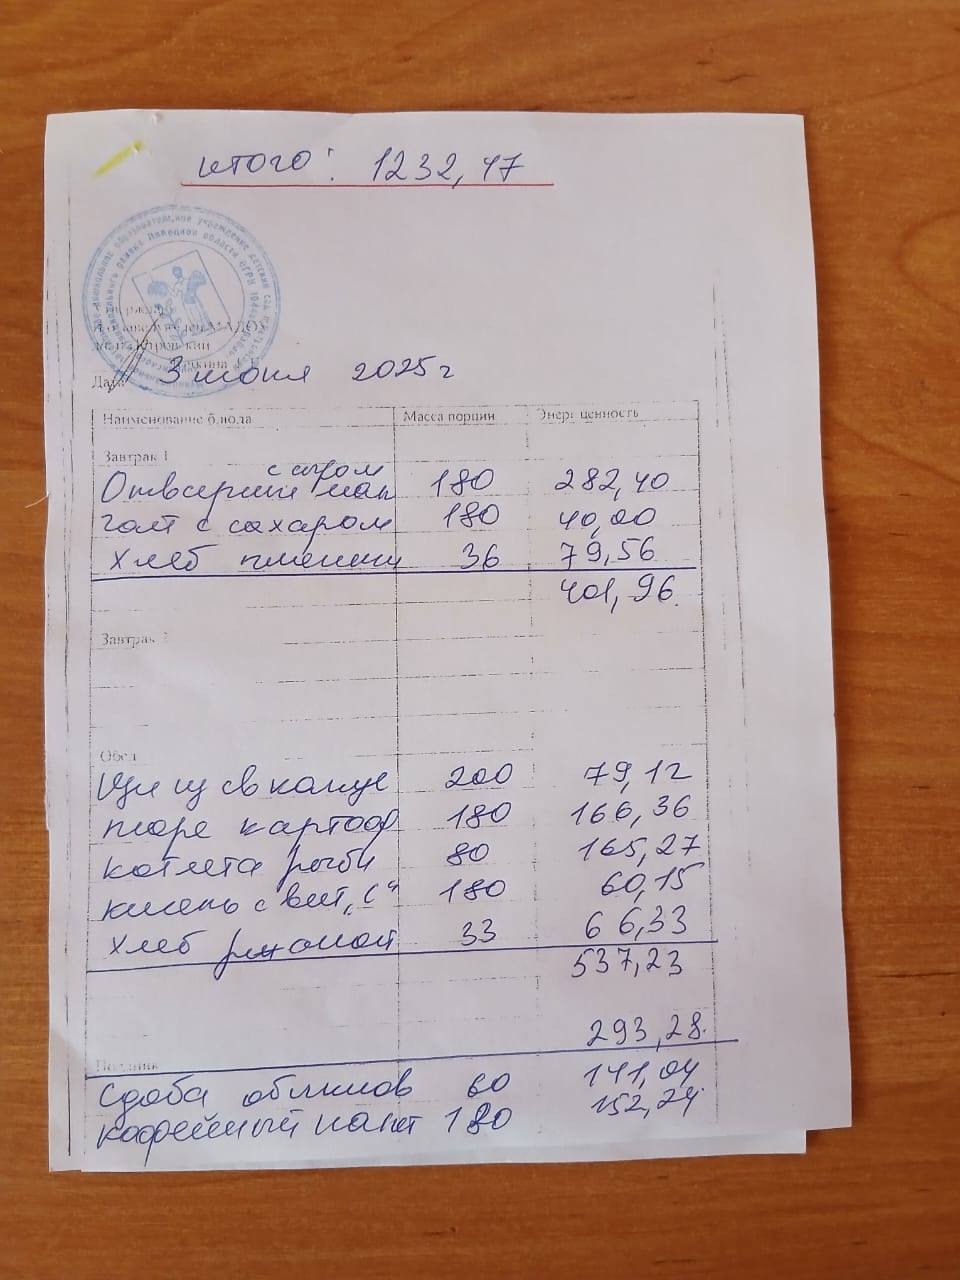 итого: 1232,47
3 июня 2025 г
Дата
Наименование блюда Масса порции Энерг ценность
Завтрак 1
с сыром
Отварные мак 180 282,40
чай с сахаром 180 40,00
хлеб пшеничн 36 79,56
401,96
Завтрак 2
Обед
Щи из св капус 200 79,12
пюре картоф 180 166,36
котлета рыбн 80 165,27
кисель с вит „С“ 180 60,15
хлеб ржаной 33 66,33
537,23
293,28
Полдник
Сдоба обыкнов 60 141,04
кофейный напит 180 152,24